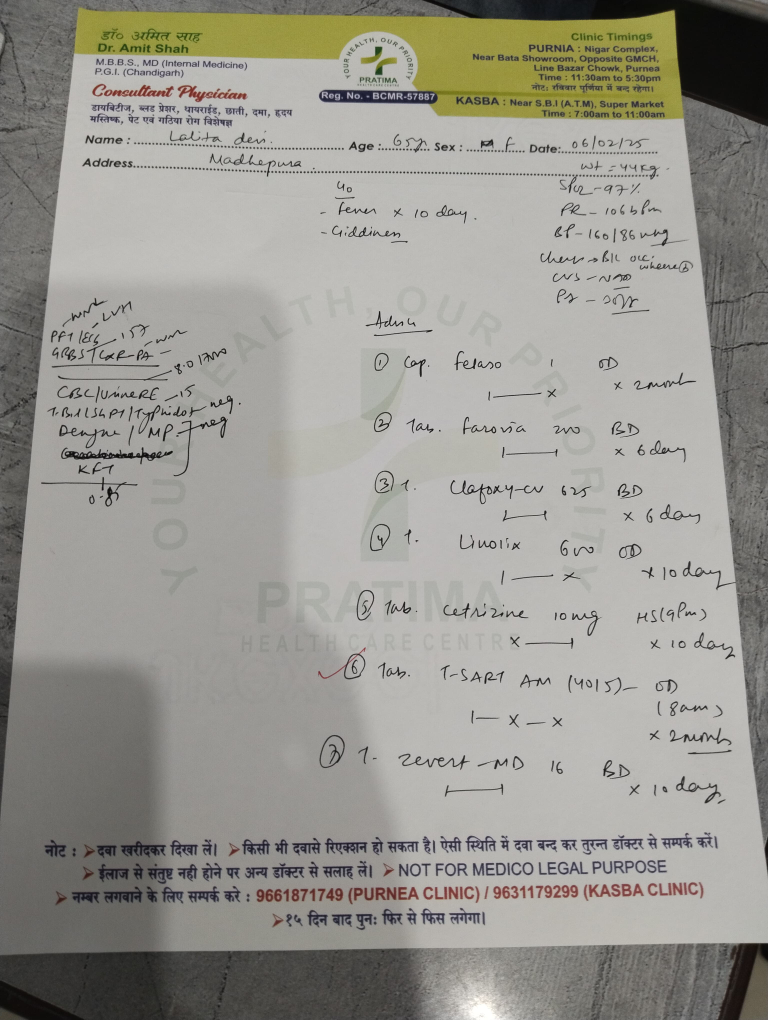 डॉ० अमित साह
Dr. Amit Shah
M.B.B.S., MD (Internal Medicine)
P.G.I. (Chandigarh)
Consultant Physician
डायबिटीज, ब्लड प्रेशर, थायराईड, छाती, दमा, हृदय
मस्तिष्क, पेट एवं गठिया रोग विशेषज्ञ
YOUR HEALTH, OUR PRIORITY
PRATIMA
HEALTH CARE CENTRE
Reg. No. - BCMR-57887
Clinic Timings
PURNIA : Nigar Complex,
Near Bata Showroom, Opposite GMCH,
Line Bazar Chowk, Purnea
Time : 11:30am to 5:30pm
नोट: रविवार पूर्णिया में बन्द रहेगा।
KASBA : Near S.B.I (A.T.M), Super Market
Time : 7:00am to 11:00am
Name : Lalita devi. Age : 65y. Sex : F Date: 06/02/25
Address Madhepura. wt = 44kg.
SPO2 - 97%
PR - 106 bpm
BP - 160/86 mmhg
Chest → B/L occ. wheeze
CVS - NAD
PA - soft
c/o
- Fever x 10 day.
- Giddiness
PFT/ECG
GRBS/CXR-PA
CBC/Urine RE
T.Bil/SGPT/Typhidot neg.
Dengue/MP neg
KFT
0.85
Advice
① Cap. Feraso 1 OD
1—x x 2 month
② Tab. Farovia 200 BD
1—1 x 6 day
③ T. Clafoxy-cv 625 BD
1—1 x 6 day
④ T. Linolix 600 OD
1—x x 10 day
⑤ Tab. Cetrizine 10mg HS (9pm)
x—1 x 10 day
⑥ Tab. T-SART AM (40/5) - OD
(8am)
1—x—x
x 2 month
⑦ T. Zevert-MD 16 BD
1—1 x 10 day
YOUR HEALTH, OUR PRIORITY
PRATIMA
HEALTH CARE CENTRE
नोट : ➤दवा खरीदकर दिखा लें। ➤किसी भी दवासे रिएक्शन हो सकता है। ऐसी स्थिति में दवा बन्द कर तुरन्त डॉक्टर से सम्पर्क करें।
➤ईलाज से संतुष्ट नही होने पर अन्य डॉक्टर से सलाह लें। ➤NOT FOR MEDICO LEGAL PURPOSE
➤नम्बर लगवाने के लिए सम्पर्क करे : 9661871749 (PURNEA CLINIC) / 9631179299 (KASBA CLINIC)
➤१५ दिन बाद पुनः फिर से फिस लगेगा।